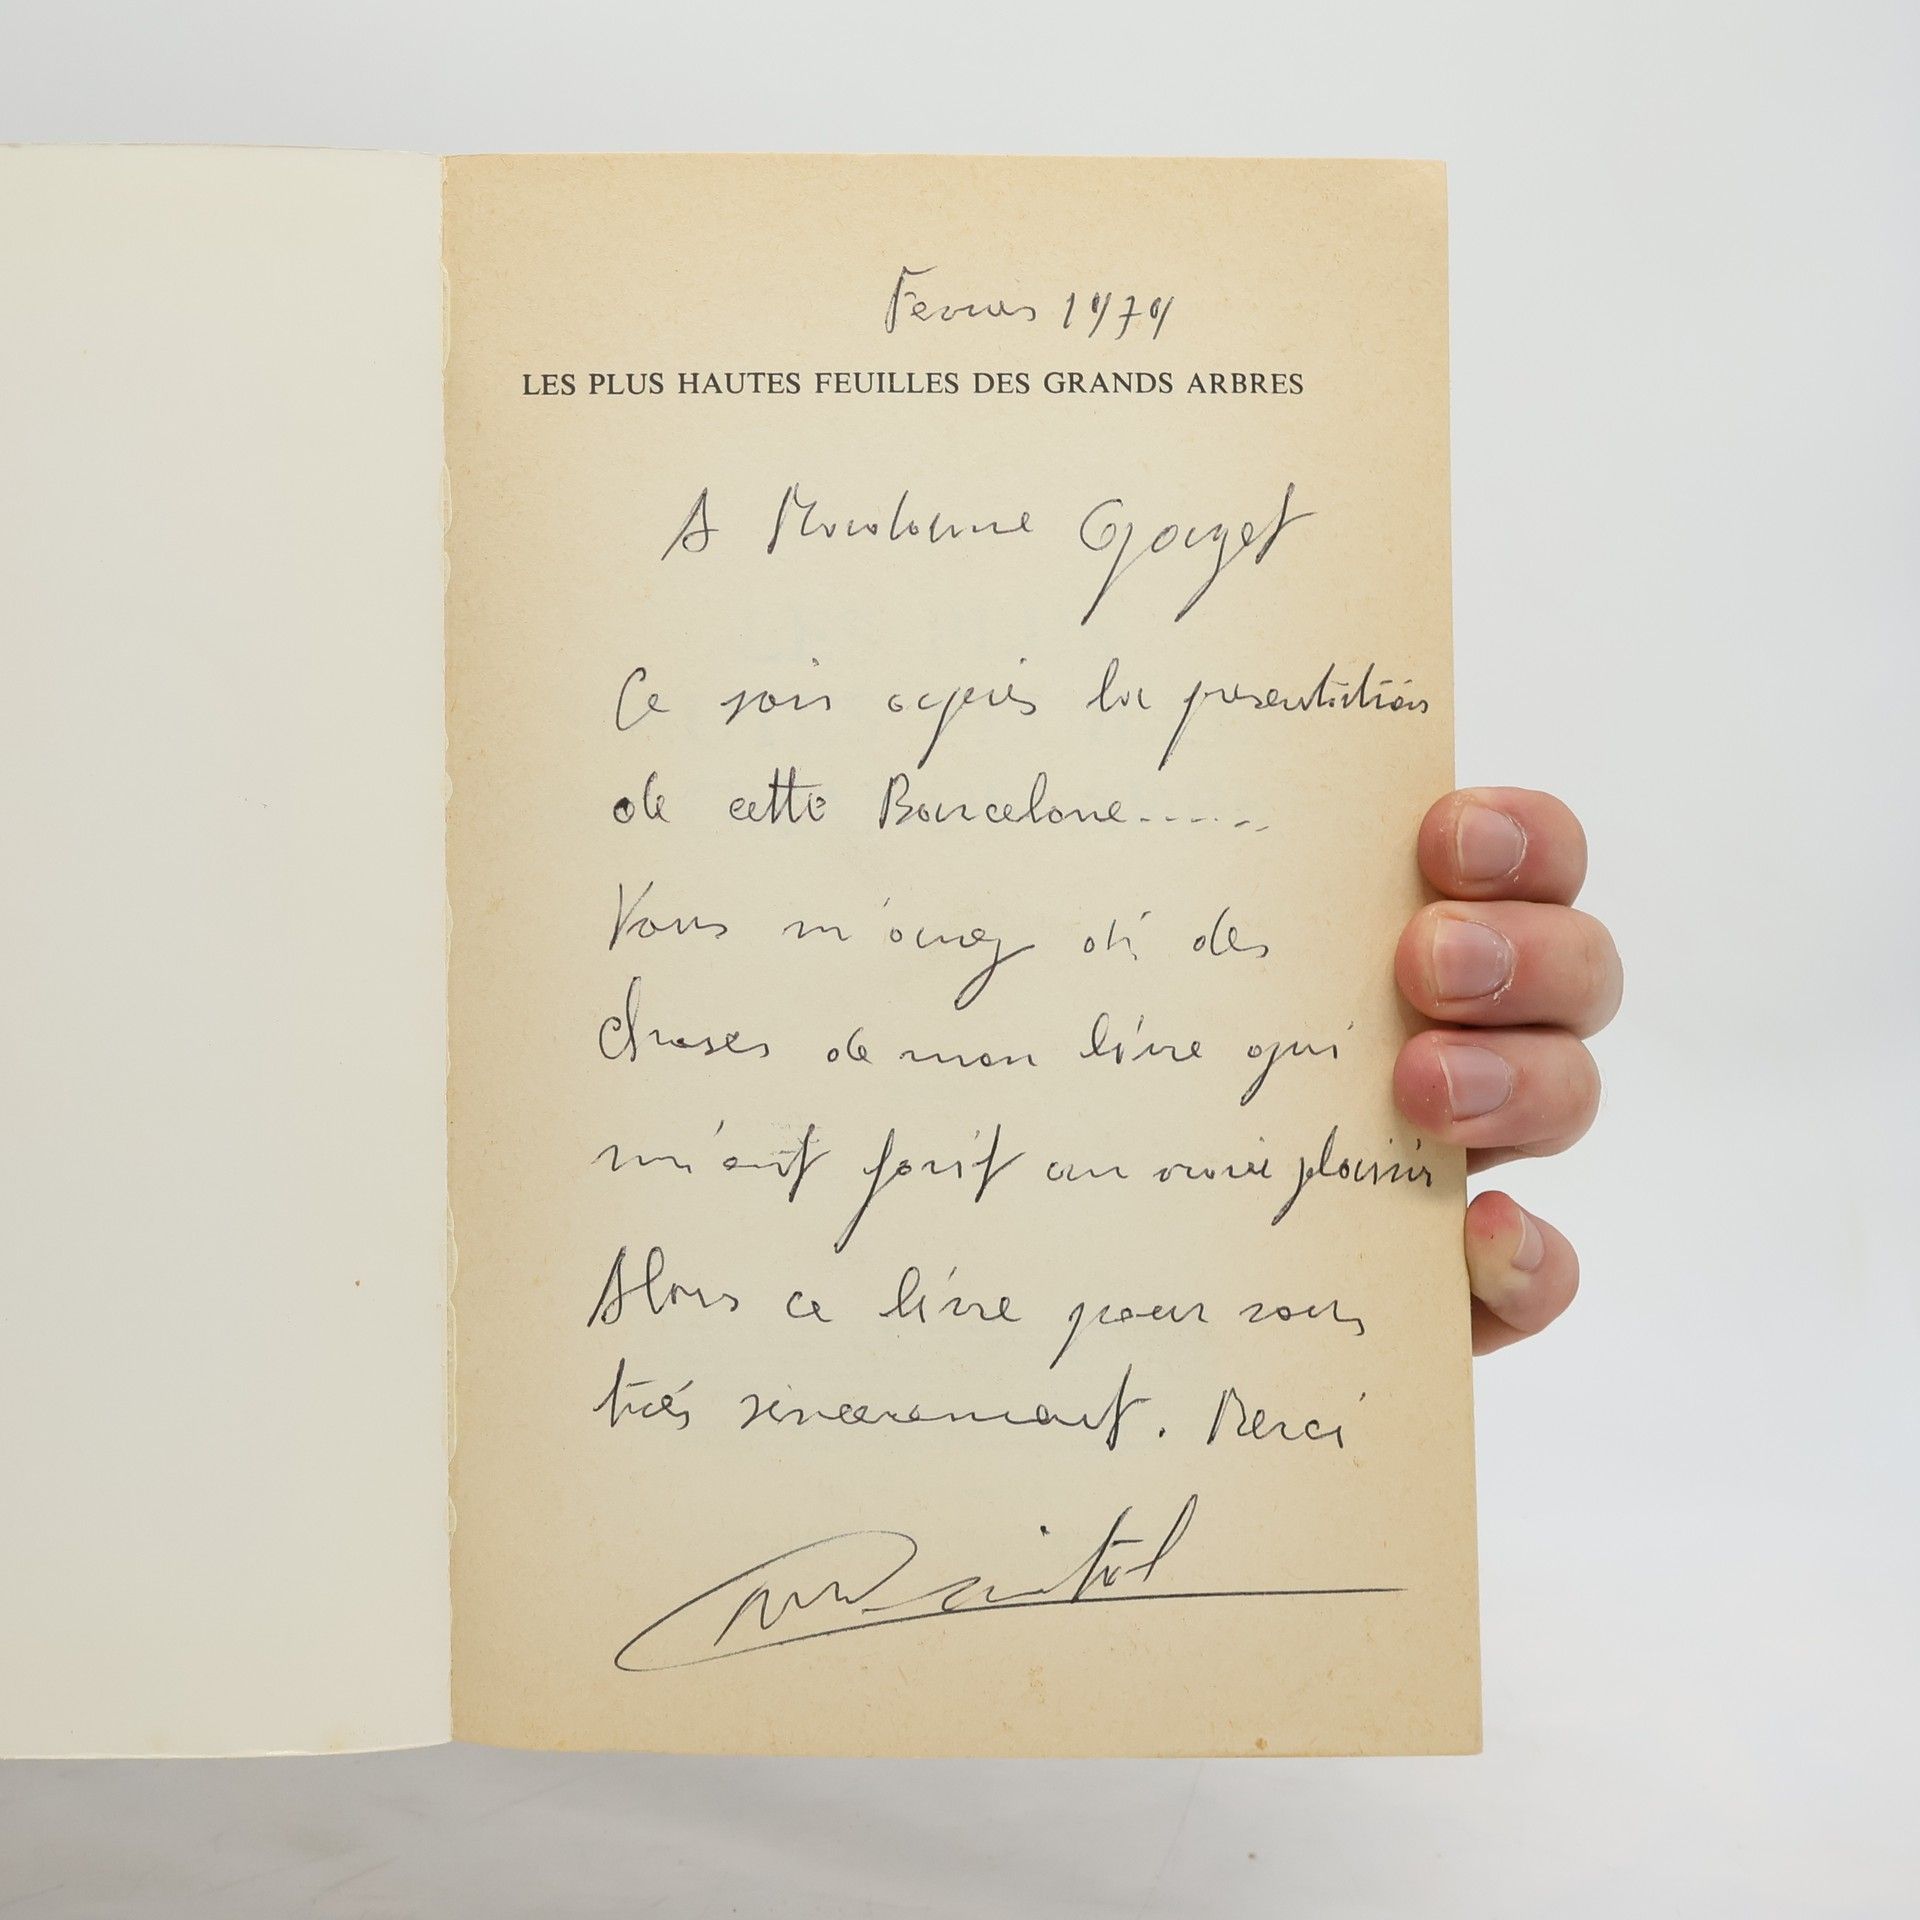 Fevrier 1979
LES PLUS HAUTES FEUILLES DES GRANDS ARBRES
A Madame
Ce soir après la presentation
de cette Barcelone......
Vous m'avez dit des
choses de mon livre qui
m'ont fait un vrai plaisir
Alors ce livre pour vous
très sincerement. Merci